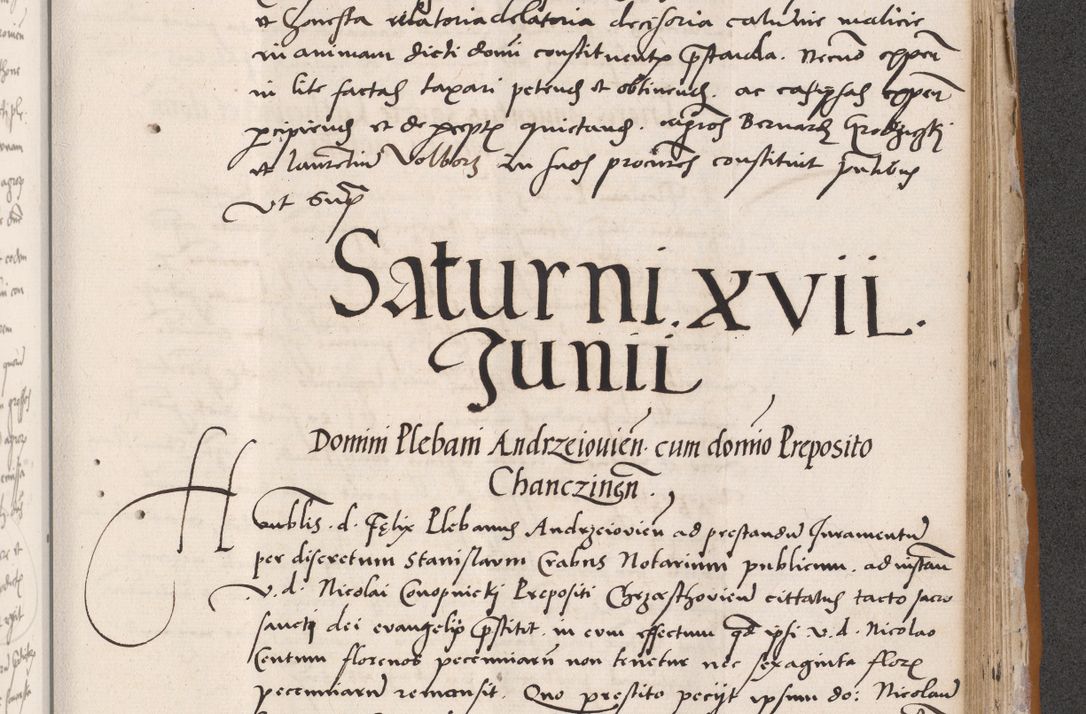 et honesta relatoria delatoria decisoria calumnie malicie
in animam dicti domi constituentis pstanda. Necno expen
in lite factas taxari petend et obtinend. ac casq ipsas expen
pcipiend et de pceptis quietand. Bernard Grodzyski
et laurentiu Volborz in suos procures constituit pntibus
vt Supra
Saturni. XVII.
Junii
Domini Plebani Andrzeiovien. cum domino Preposito
Chanczinen.
Honblis. d. Felix Plebanus Andrzeiovien ad prestandu Juramentu
per discretum Stanislaum Crabus Notarium publicum. ad instan
v. d. Nicolai Conopnicki Prepositi Chrzasthovien cittatus tacto sacro
sancti dei evangelys pstitit. in eum effectum qd ipsi v. d. Nicolao
Centum florenos pecunniaru non tenetur nec sexaginta flore
pecunniaru remansit. Quo prestito pecyt ipsum do: Nicolau